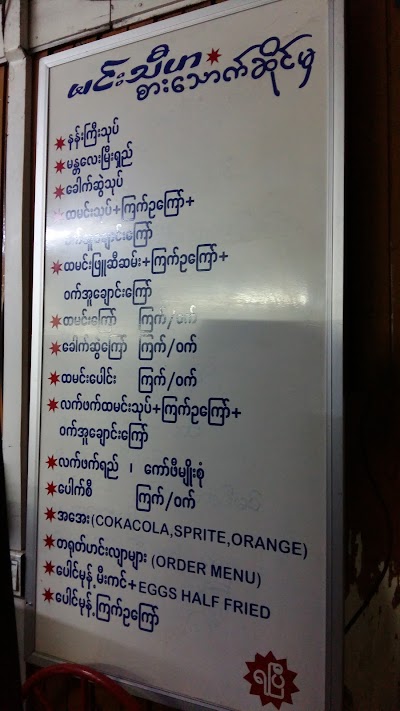 မင်းသီဟ
စားသောက်ဆိုင်မှ
နန်းကြီးသုပ်
မန္တလေးမြီးရှည်
ခေါက်ဆွဲသုပ်
ထမင်းသုပ်+ကြက်ဥကြော်+
ဝက်အူချောင်းကြော်
ထမင်းဖြူဆီဆမ်း+ကြက်ဥကြော်+
ဝက်အူချောင်းကြော်
ထမင်းကြော် ကြက်/ဝက်
ခေါက်ဆွဲကြော် ကြက်/ဝက်
ထမင်းပေါင်း ကြက်/ဝက်
လက်ဖက်ထမင်းသုပ်+ကြက်ဥကြော်+
ဝက်အူချောင်းကြော်
လက်ဖက်ရည် ၊ ကော်ဖီမျိုးစုံ
ပေါက်စီ ကြက်/ဝက်
အအေး(COKACOLA,SPRITE,ORANGE)
တရုတ်ဟင်းလျာများ (ORDER MENU)
ပေါင်မုန့်မီးကင်+EGGS HALF FRIED
ပေါင်မုန့်ကြက်ဥကြော်
ရပြီ